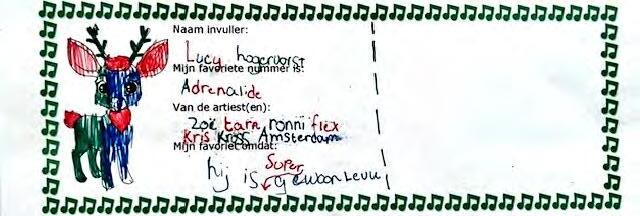 Naam invuller:
Lucy hogervorst
Mijn favoriete nummer is:
Adrenalide
Van de artiest(en):
Zoë tara, ronni flex
Kris Kross Amsterdam
Mijn favoriet omdat:
hij is super gewoon Leuk